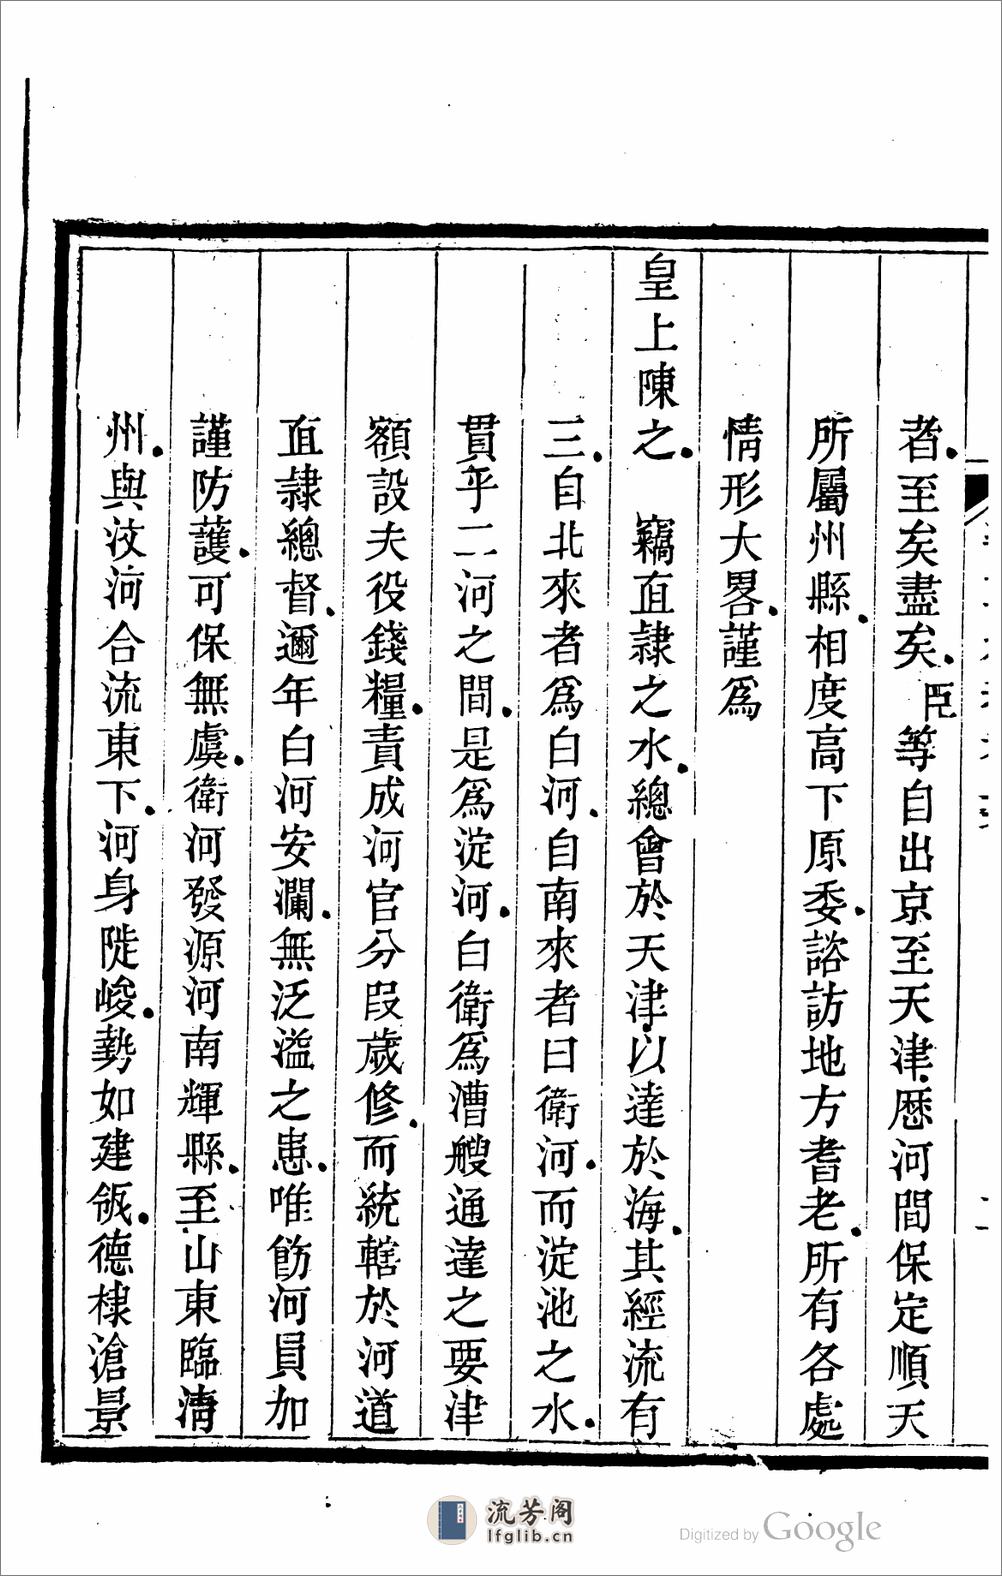 者至矣盡矣臣等自出京至天津歷河間保定順天
所屬州縣相度高下原委諮訪地方耆老所有各處
情形大畧謹爲
皇上陳之 竊直隸之水總會於天津以達於海其經流有
三自北來者爲白河自南來者曰衛河而淀池之水
貫乎二河之間是爲淀河白衛爲漕艘通達之要津
額設夫役錢糧責成河官分段歲修而統轄於河道
直隸總督邇年白河安瀾無泛溢之患唯飭河員加
謹防護可保無虞衛河發源河南輝縣至山東臨清
州與汶河合流東下河身陡峻勢如建瓴德棣滄景
流芳阁
lfglib.cn
Digitized by Google